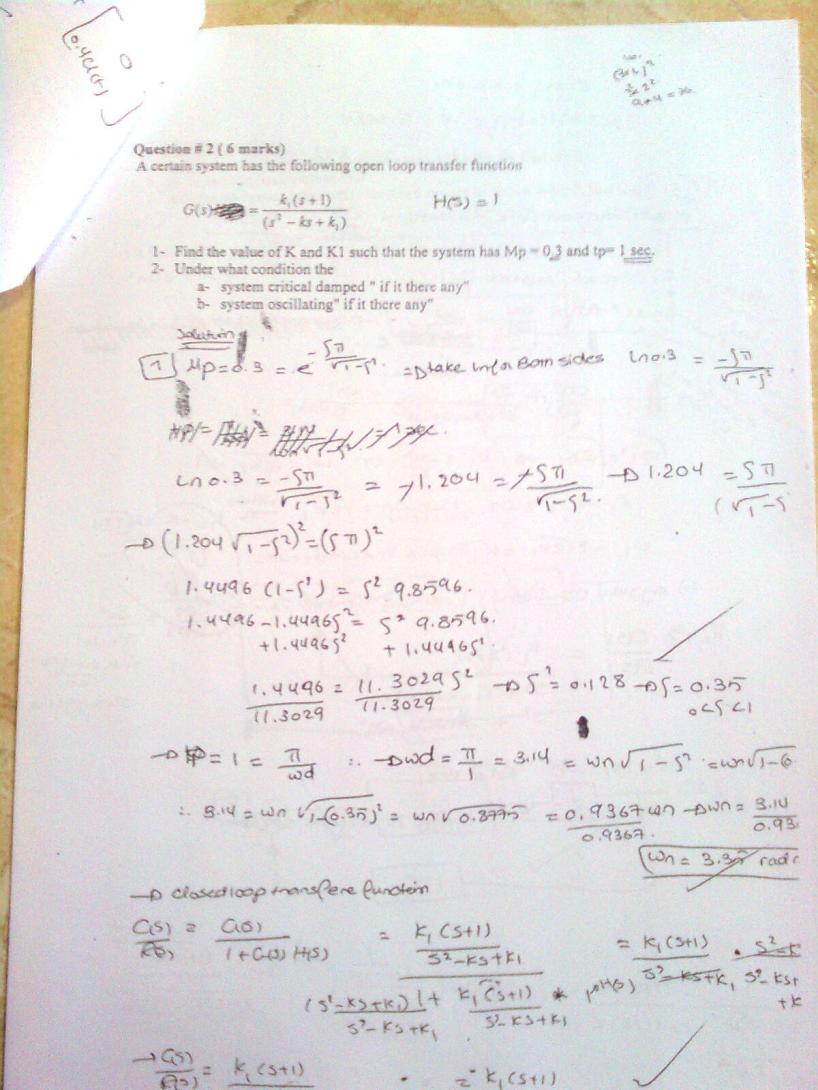 0
[0.4C(t)]
Question # 2 ( 6 marks)
A certain system has the following open loop transfer function
G(s) = k₁(s+1) / (s² − ks + k₁)    H(s) = 1
1- Find the value of K and K1 such that the system has Mp = 0.3 and tp= 1 sec.
2- Under what condition the
a- system critical damped " if it there any"
b- system oscillating" if it there any"
Solution
1 Mp=0.3 = e^(-ζπ/√1-ζ²) ⇒ take ln for Both sides ln 0.3 = -ζπ/√1-ζ²
ln 0.3 = -ζπ/√1-ζ² = -1.204 = -ζπ/√1-ζ². → 1.204 = ζπ/(√1-ζ
→ (1.204 √1-ζ²)² = (ζπ)²
1.4496 (1-ζ²) = ζ² 9.8596.
1.4496 -1.4496ζ² = ζ² 9.8596.
+1.4496ζ² + 1.4496ζ²
1.4496/11.3029 = 11.3029 ζ²/11.3029 → ζ² = 0.128 → ζ = 0.35
0<ζ<1
→ tp = 1 = π/wd ∴ → wd = π/1 = 3.14 = wn √1-ζ² = wn √1-(0
∴ 3.14 = wn √1-(0.35)² = wn √0.8775 = 0.9367 wn/0.9367. → wn = 3.14/0.93
wn = 3.35 rad/
→ closed loop transfere function
C(s)/R(s) = G(s)/1+G(s) H(s) = K₁(s+1)/s²-Ks+K₁ = K₁(s+1)/s²-Ks+K₁ • s²-K
(s²-Ks+K₁) 1+ K₁(s+1)/s²-Ks+K₁ * 1→H(s) s²-Ks+ +K
→ C(s)/R(s) = K₁(s+1) • = K₁(s+1)